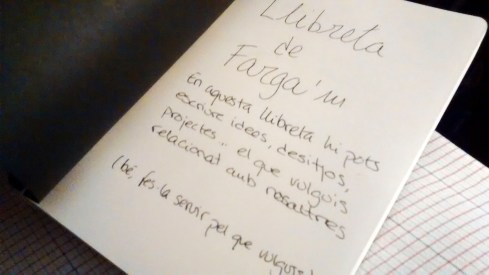 Llibreta
de
Farga'm
En aquesta llibreta hi pots
escriure idees, desitjos,
projectes.. el que vulguis
relacionat amb nosaltres
(bé, fes-la servir pel que vulguis!)